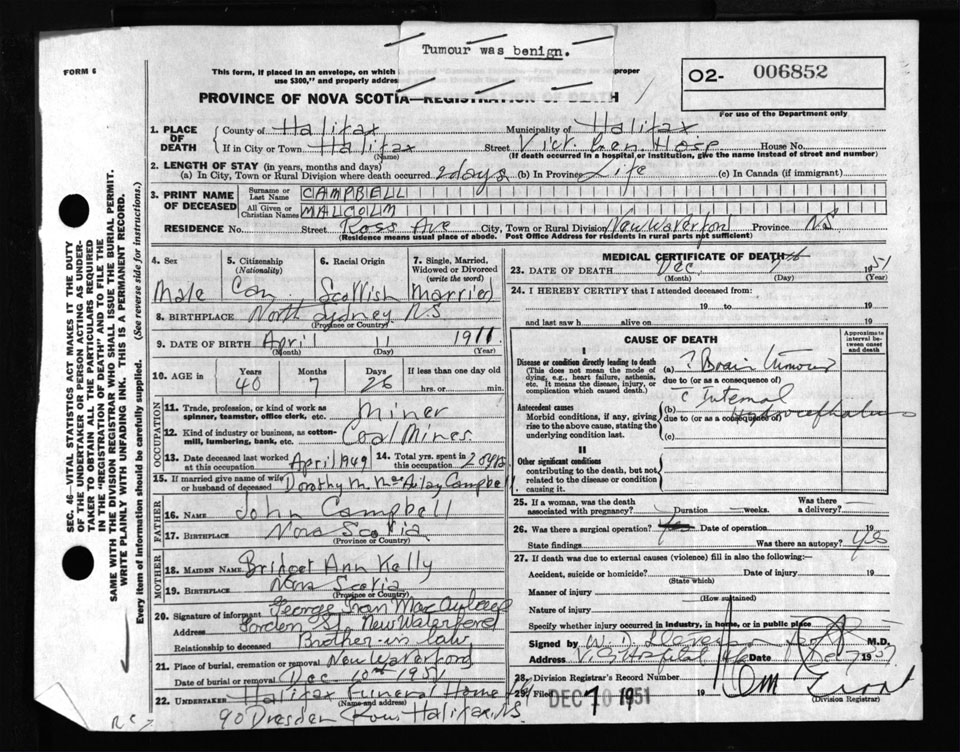 Tumour was benign.
FORM 6
This form, if placed in an envelope, on which
use $300," and properly address
proper
O2- 006852
For use of the Department only
PROVINCE OF NOVA SCOTIA—REGISTRATION OF DEATH
SEC. 46—VITAL STATISTICS ACT MAKES IT THE DUTY
OF THE UNDERTAKER OR PERSON ACTING AS UNDER-
TAKER TO OBTAIN ALL THE PARTICULARS REQUIRED
IN THE "REGISTRATION OF DEATH" AND TO FILE THE
SAME WITH THE DIVISION REGISTRAR WHO SHALL ISSUE THE BURIAL PERMIT.
WRITE PLAINLY WITH UNFADING INK. THIS IS A PERMANENT RECORD.
Every item of information should be carefully supplied. (See reverse side for instructions.)
1. PLACE OF DEATH
County of Halifax Municipality of Halifax
If in City or Town Halifax Street Vict. Gen Hosp House No.
(Name) (If death occurred in a hospital or institution, give the name instead of street and number)
2. LENGTH OF STAY (in years, months and days)
(a) In City, Town or Rural Division where death occurred 2 days (b) In Province Life (c) In Canada (if immigrant)
3. PRINT NAME OF DECEASED
Surname or Last Name CAMPBELL
All Given or Christian Names MALCOLM
RESIDENCE No. Street Ross Ave City, Town or Rural Division New Waterford Province NS
(Residence means usual place of abode. Post Office Address for residents in rural parts not sufficient)
4. Sex Male
5. Citizenship (Nationality) Can
6. Racial Origin Scottish
7. Single, Married, Widowed or Divorced (write the word) Married
8. BIRTHPLACE North Sydney NS
(Province or Country)
9. DATE OF BIRTH April 11 1911
(Month) (Day) (Year)
10. AGE IN Years Months Days If less than one day old
40 7 26 hrs. or min.
OCCUPATION
11. Trade, profession, or kind of work as spinner, teamster, office clerk, etc. Miner
12. Kind of industry or business, as cotton-mill, lumbering, bank, etc. Coal Mines
13. Date deceased last worked at this occupation April 1949
14. Total yrs. spent in this occupation 20 yrs
15. If married give name of wife or husband of deceased Dorothy M. Campbell
FATHER
16. Name John Campbell
17. Birthplace Nova Scotia
(Province or Country)
MOTHER
18. Maiden Name Bridget Ann Kelly
19. Birthplace Nova Scotia
(Province or Country)
20. Signature of informant George Ivan
Address St. New Waterford
Relationship to deceased Brother-in law
21. Place of burial, cremation or removal New Waterford
Date of burial or removal Dec 10th 1951
22. UNDERTAKER Halifax Funeral Home
(Name and address)
90 Dresden Row Halifax, NS.
MEDICAL CERTIFICATE OF DEATH
23. DATE OF DEATH Dec 7th 1951
(Month) (Day) (Year)
24. I HEREBY CERTIFY that I attended deceased from:
19 to 19
and last saw h alive on 19
CAUSE OF DEATH
Approximate interval between onset and death
I
Disease or condition directly leading to death
(This does not mean the mode of dying, e.g., heart failure, asthenia, etc. It means the disease, injury, or complication which caused death.)
(a) ? Brain tumour
due to (or as a consequence of)
c Internal
Antecedent causes
Morbid conditions, if any, giving rise to the above cause, stating the underlying condition last.
(b) Hydrocephalus
due to (or as a consequence of)
(c)
II
Other significant conditions
contributing to the death, but not related to the disease or condition causing it.
25. If a woman, was the death associated with pregnancy? Duration weeks. Was there a delivery?
26. Was there a surgical operation? Yes Date of operation 19
State findings Was there an autopsy? Yes
27. If death was due to external causes (violence) fill in also the following:—
Accident, suicide or homicide? Date of injury 19
(State which)
Manner of injury
(How sustained)
Nature of injury
Specify whether injury occurred in industry, in home, or in public place
Signed by M.D.
Address V. G. Hospital Date Dec 7 1951
28. Division Registrar's Record Number
29. Filed DEC 10 1951 19
(Division Registrar)